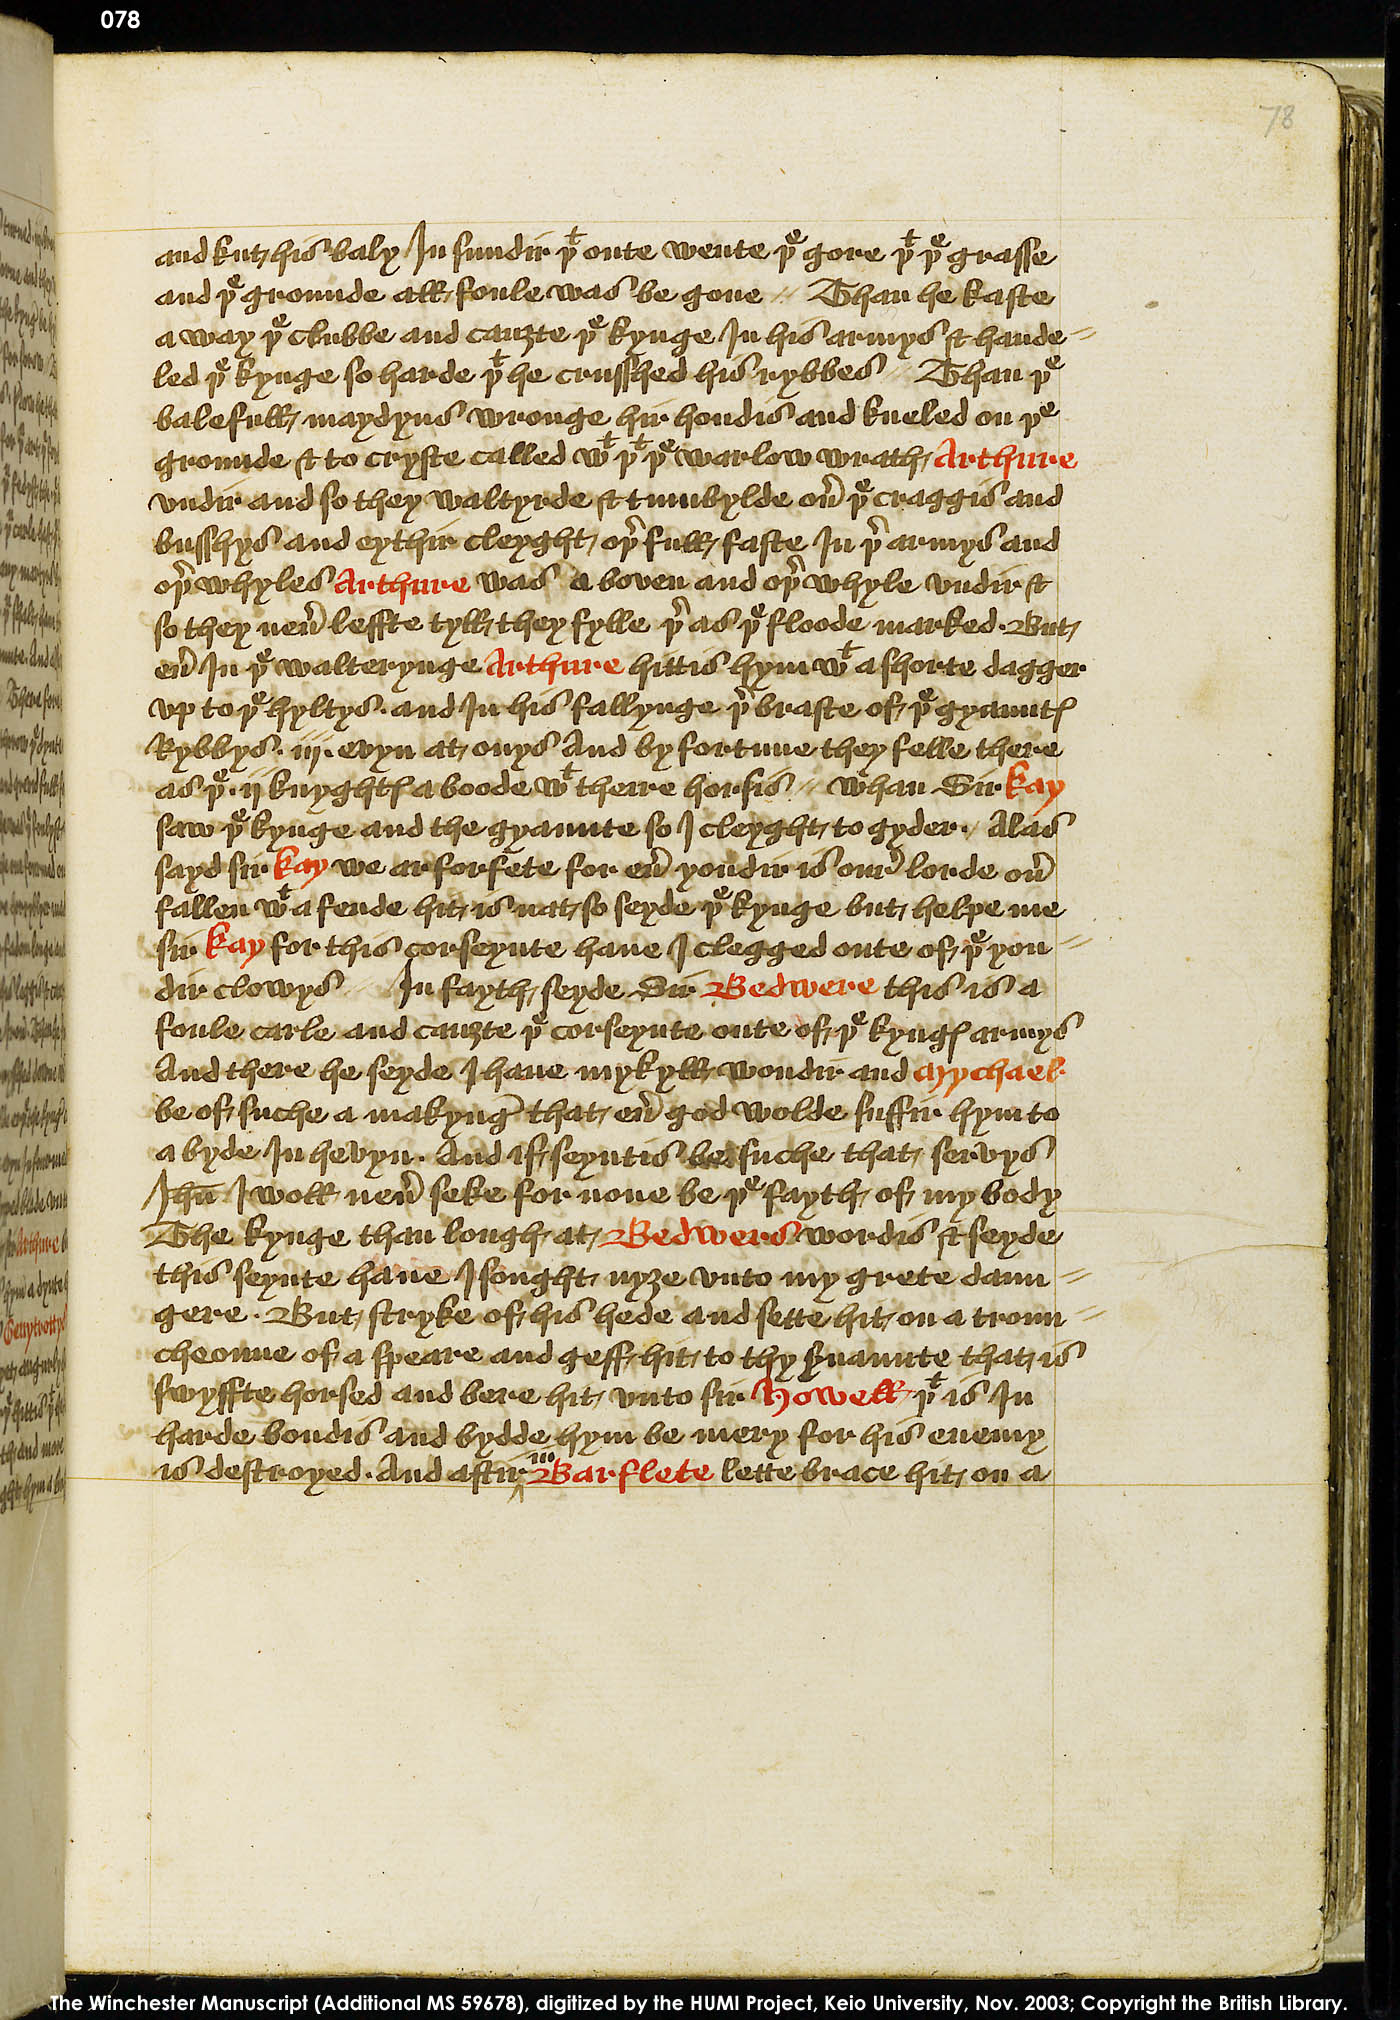 078
78
and kut his baly In sundir þͭ oute wente þͤ gore þͭ þͤ grasse
and þͤ grounde all foule was be gone // Than he kaste
a way þͤ clubbe and cauȝte þͤ kynge In his armys & hande⸗
led þͤ kynge so harde þͭ he crusshed his rybbes // Than þͤ
balefull maydyns wronge hir hondis and kneled on þͤ
grounde & to cryste called wͭ þͭ þͤ warlow wrath Arthure
vndir and so they waltyrde & tumbylde ou̾ þͤ craggis and
busshys and eythir cleyght op̾ full faste In þ̾ armys and
oþ̾ whyles Arthure was a boven and oþ̾ whyle vndir &
so they neu̾ leffte tyll they fylle þ̾ as þͤ floode marked . But
eu̾ In þͤ walterynge Arthure hittis hym wͭ a shorte dagger
vp to þͤ hyltys . and In his fallynge þ̾ braste of þͤ gyauntꝭ
Rybbys . iij . evyn at onys And by fortune they felle there
as þͤ . ij knyghtꝭ a boode wͭ theire horsis // whan Sir kay
saw þͤ kynge and the gyaunte so I cleyght to gyder . Alas
sayd sir kay we ar forfete for eu̾ yondir is our̾ lorde ou̾
fallen wͭ a fende hit is nat so seyde þͤ kynge but helpe me
sir kay for this corseynte haue I clegged oute of þͤ yon⸗
dir clowys // In fayth seyde Sir Bedwere this is a
foule carle and cauȝte þͤ corseynte oute of þͤ kyngꝭ armys
And there he seyde I haue mykyll wondir and Mychael
be of suche a makyng̾ that eu̾ god wolde suffir hym to
a byde In hevyn . And if seyntis be suche that servys
Jhu̅ I woll neu̾ seke for none be þͤ fayth of my body
The kynge than lough at Bedwers wordis & seyde
this seynte haue I sought nyȝe vnto my grete daun⸗
gere . But stryke of his hede and sette hit on a troun⸗
cheoune of a speare and geff hit to thy s̾uaunte that is
swyffte horsed and bere hit vnto sir Howell þͭ is In
harde bondis and bydde hym be mery for his enemy
is destroyed . And aftir in Barflete lette brace hit on a
The Winchester Manuscript (Additional MS 59678), digitized by the HUMI Project, Keio University, Nov. 2003; Copyright the British Library.